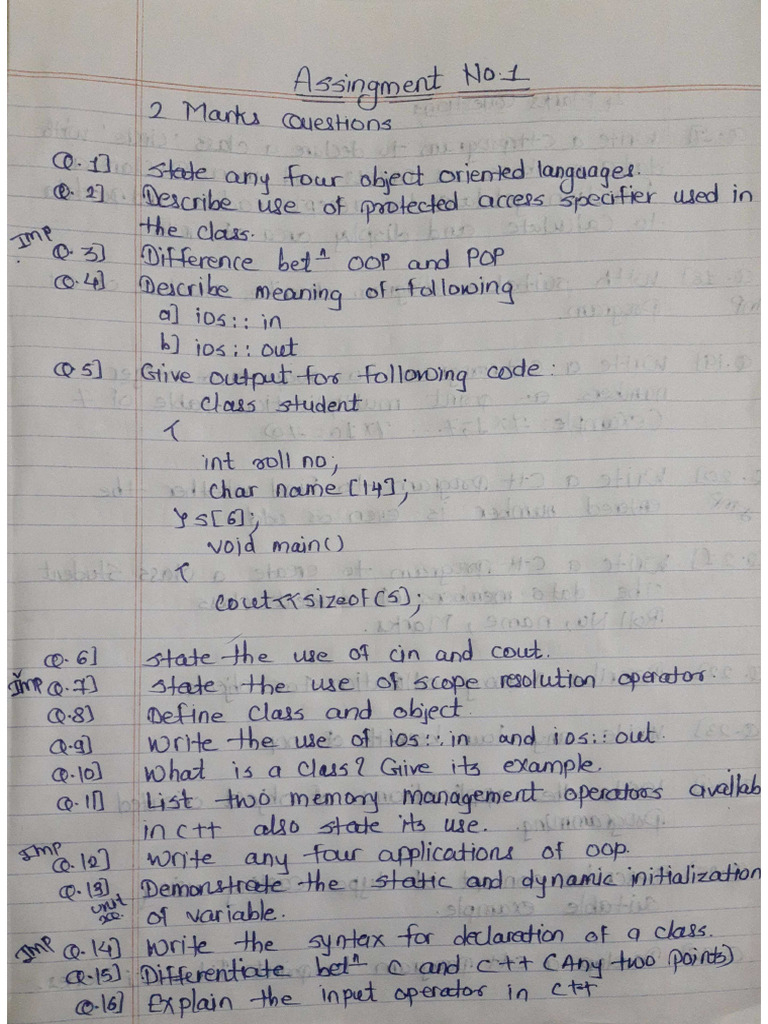 Assingment No.1
2 Marks Questions
Q.1] State any four object oriented languages.
Q.2] Describe use of protected access specifier used in
the class.
IMP Q.3] Difference betⁿ OOP and POP
Q.4] Describe meaning of following
a] ios:: in
b] ios:: out
Q5] Give output for following code:
class student
{
int roll no;
char name [14];
}s[6];
void main()
{
cout<<sizeof(s);
Q.6] State the use of cin and cout.
IMP Q.7] State the use of scope resolution operator
Q.8] Define Class and object
Q.9] Write the use of ios::in and ios::out.
Q.10] What is a class? Give its example.
Q.11] List two memory management operators availab
in C++ also state its use.
IMP Q.12] Write any four applications of oop.
Q.13] Demonstrate the static and dynamic initialization
of variable.
IMP Q.14] Write the syntax for declaration of a class.
Q.15] Differentiate betⁿ C and C++ (Any two points)
Q.16] Explain the input operator in C++